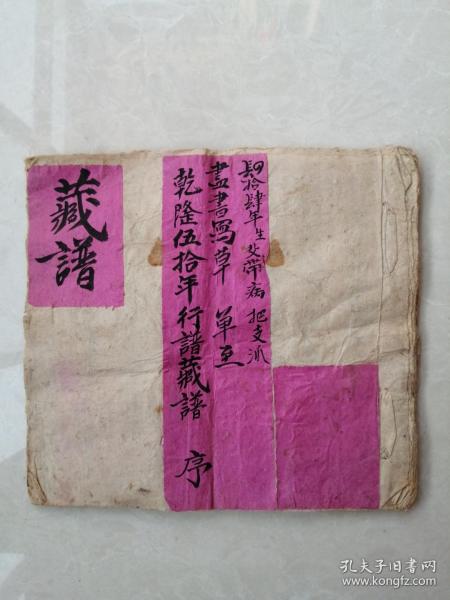 肆拾肆年生父带病把支派
盡書寫草單至
乾隆伍拾年行譜藏譜 序
藏譜
孔夫子旧书网
www.kongfz.com